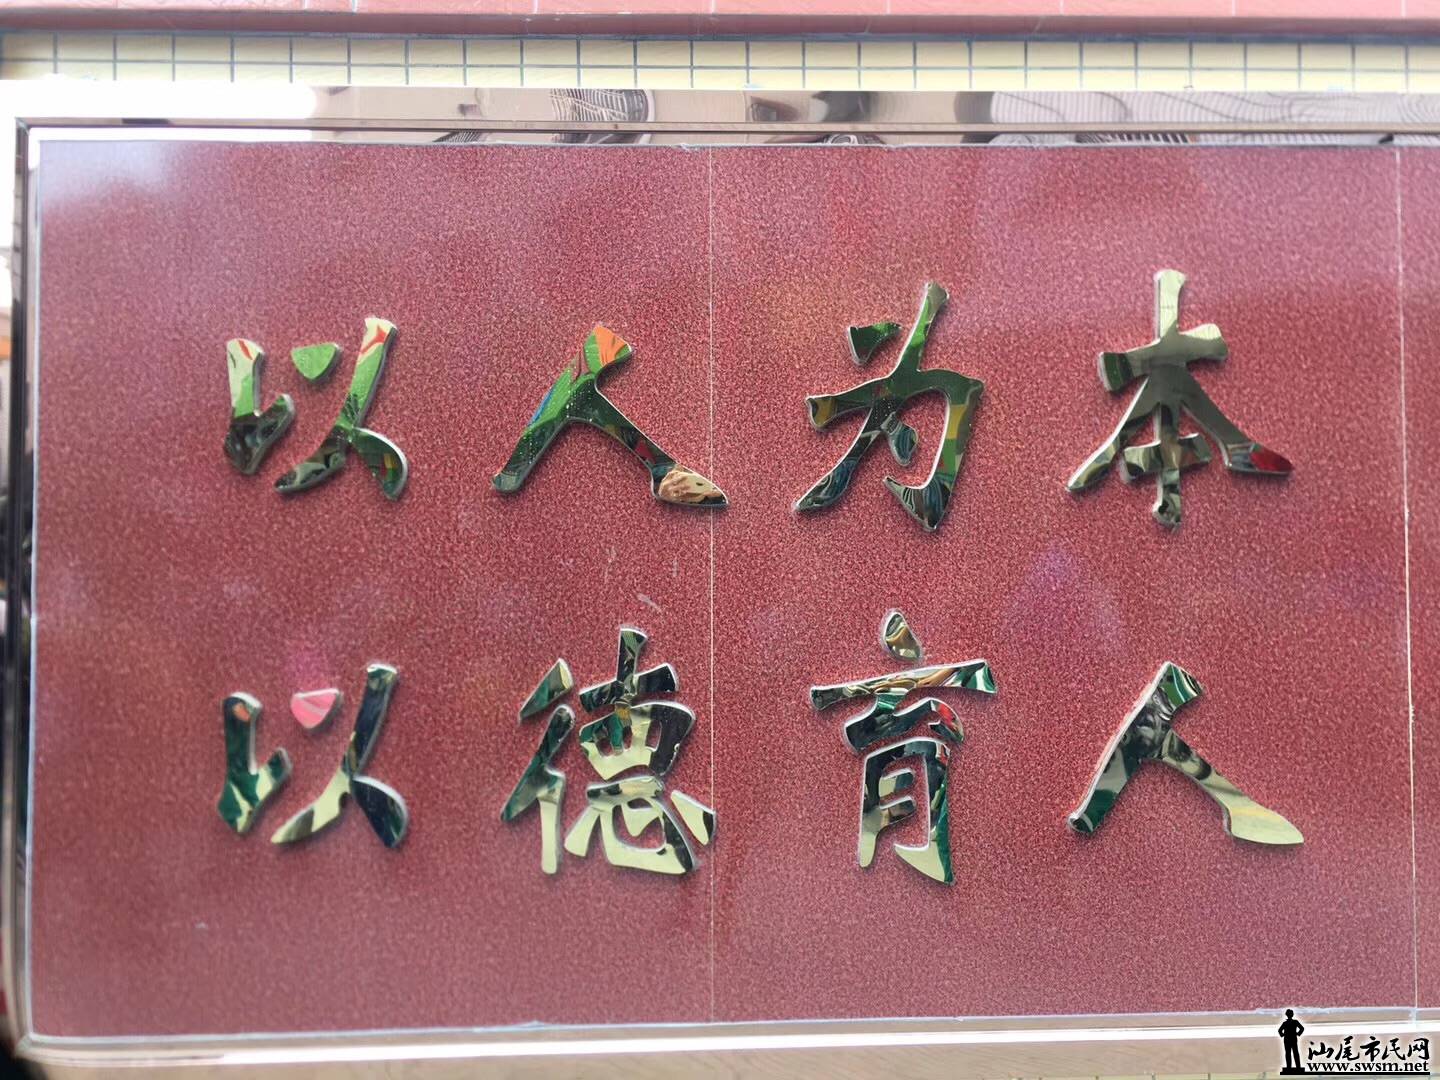 以人为本
以德育人
汕尾市民网
www.swsm.net